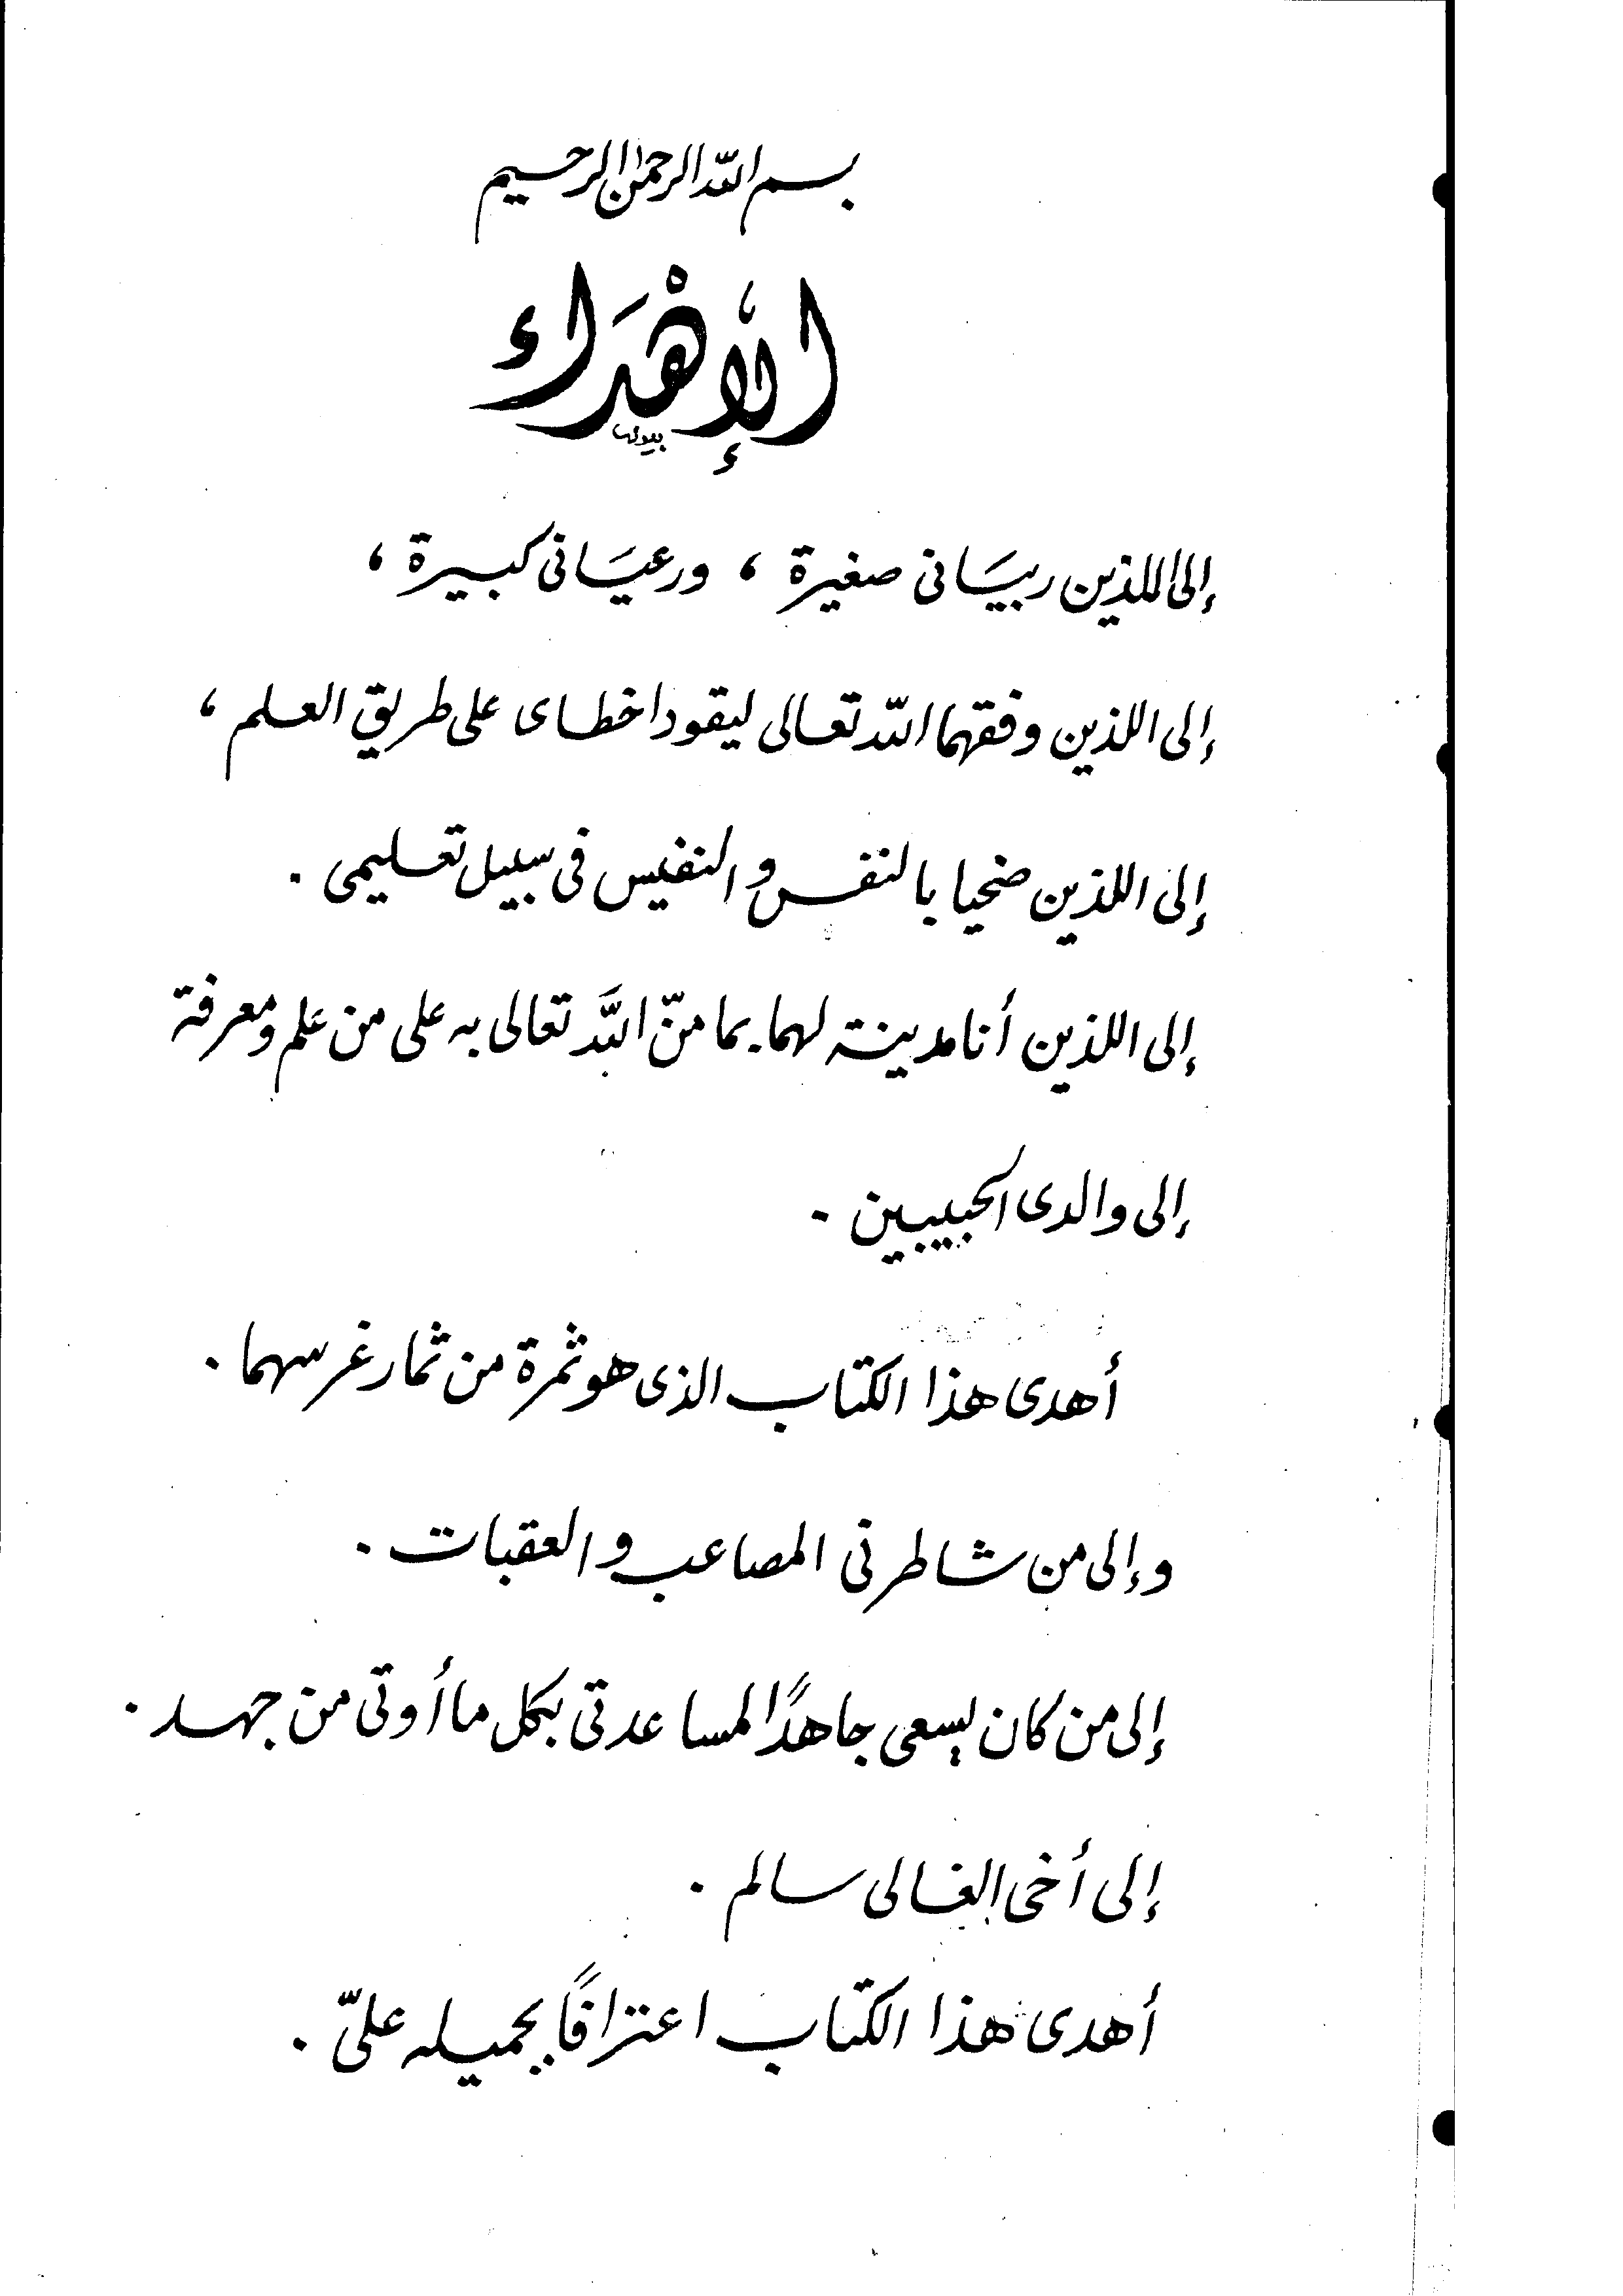 بسم الله الرحمن الرحيم
الإهْدَاء
إلى اللذين ربيَانى صغيرة ، ورعيَانى كبيرة ،
إلى اللذين وفقهما الله تعالى ليقودا خطاى على طريق العلم ،
إلى اللذين ضحيا بالنفس والنفيس فى سبيل تعليمى .
إلى اللذين أنا مدينة لهما بما منّ الله تعالى به على من علم ومعرفة
إلى والدى الحبيبين .
أهدى هذا الكتاب الذى هو ثمرة من ثمار غرسهما .
وإلى من شاطرنى المصاعب والعقبات .
إلى من كان يسعى جاهدًا لمساعدتى بكل ما أوتى من جهد .
إلى أخى الغالى سالم .
أهدى هذا الكتاب اعترافًا بجميله علىّ .